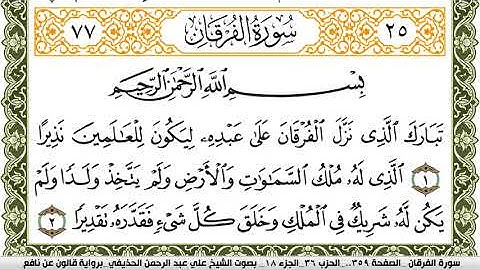 ٧٧ سُورَةُ الْفُرْقَانِ ٢٥
بِسْمِ اللَّهِ الرَّحْمَٰنِ الرَّحِيمِ
تَبَارَكَ الَّذِي نَزَّلَ الْفُرْقَانَ عَلَىٰ عَبْدِهِ لِيَكُونَ لِلْعَالَمِينَ نَذِيرًا
١ الَّذِي لَهُ مُلْكُ السَّمَاوَاتِ وَالْأَرْضِ وَلَمْ يَتَّخِذْ وَلَدًا وَلَمْ
يَكُن لَّهُ شَرِيكٌ فِي الْمُلْكِ وَخَلَقَ كُلَّ شَيْءٍ فَقَدَّرَهُ تَقْدِيرًا ٢
سورة الفرقان _الصفحة ٣٥٩_ _الحزب ٣٦_الجزء ١٨_ بصوت الشيخ علي عبد الرحمن الحذيفي_برواية قالون عن نافع